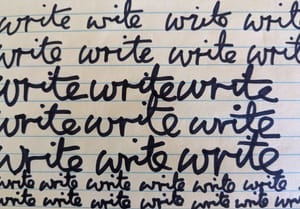 write write write write
write write write write
write write write
write write write
write write write
write write write write write write
write write write write write write